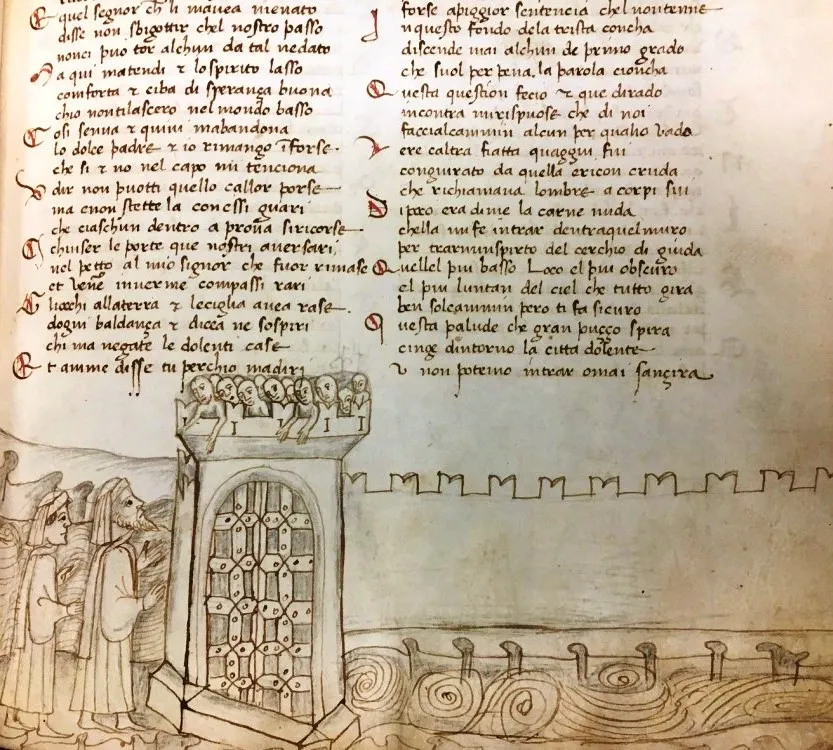 E quel segnor ch li mavea menato
disse non sbigottir chel nostro passo
nonci puo tor alchun da tal nedato
a qui matendi ⁊ lo spirito lasso
comforta ⁊ ciba di sperança buona
chio nontilascero nel mondo basso
C osi senva ⁊ quivi mabandona
lo dolce padre ⁊ io rimango īforse
che si ⁊ no nel capo mi tenciona
V dir non puotti quello callor porse
ma enon stette la conessi guari
che ciaschun dentro a prova siricorse
C hiuser le porte que nostri aversari
nel petto al mio signor che fuor rimase
et venē inverme compassi rari
G liocchi allaterra ⁊ leciglia avea rase
dogni baldança ⁊ dicea ne sospiri
chi ma negate le dolenti case
E t amme disse tu perchio madiri
forse apiggior sentencia chel nontenne
I nquesto fondo dela trista concha
discende mai alchun de primo grado
che suol per pena la parola cioncha
Q uesta question fecio ⁊ que dirado
incontra mirispuose che di noi
faccialcammin alcun per qualio vado
V ere caltra fiatta quaggiu fui
congiurato da quella ericon cruda
che richiamava lombre a corpi sui
D ipoco era dime la carne nuda
chella mi fe intrar dentraquel muro
per trarmi nspirto del cerchio di giuda
Q uellel piu basso loco el piu obscuro
el piu luntan del ciel che tutto gira
ben soleammin pero ti fa sicuro
Q uesta palude che gran puçço spira
cinge dintorno la citta dolente
u non potemo intrar omai sançira